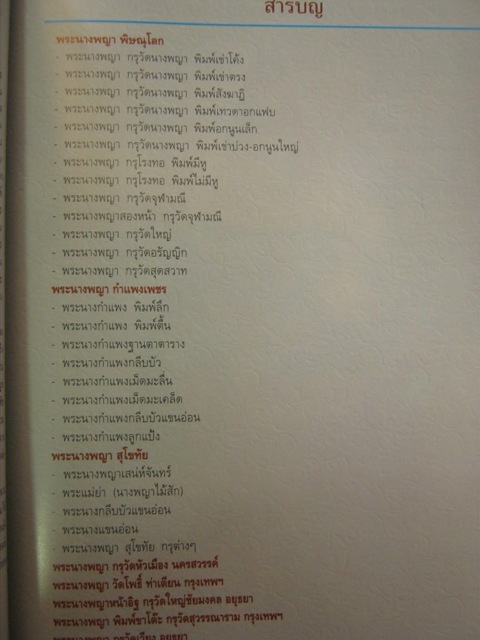 สารบัญ
พระนางพญา พิษณุโลก
- พระนางพญา กรุวัดนางพญา พิมพ์เข่าโค้ง
- พระนางพญา กรุวัดนางพญา พิมพ์เข่าตรง
- พระนางพญา กรุวัดนางพญา พิมพ์สังฆาฏิ
- พระนางพญา กรุวัดนางพญา พิมพ์เทวดาอกแฟบ
- พระนางพญา กรุวัดนางพญา พิมพ์อกนูนเล็ก
- พระนางพญา กรุวัดนางพญา พิมพ์เข่าบ่วง-อกนูนใหญ่
- พระนางพญา กรุโรงทอ พิมพ์มีหู
- พระนางพญา กรุโรงทอ พิมพ์ไม่มีหู
- พระนางพญา กรุวัดจุฬามณี
- พระนางพญาสองหน้า กรุวัดจุฬามณี
- พระนางพญา กรุวัดใหญ่
- พระนางพญา กรุวัดอรัญญิก
- พระนางพญา กรุวัดสุดสวาท
พระนางพญา กำแพงเพชร
- พระนางกำแพง พิมพ์ลึก
- พระนางกำแพง พิมพ์ตื้น
- พระนางกำแพงฐานตาตาราง
- พระนางกำแพงกลีบบัว
- พระนางกำแพงเม็ดมะลื่น
- พระนางกำแพงเม็ดมะเคล็ด
- พระนางกำแพงกลีบบัวแขนอ่อน
- พระนางกำแพงลูกแป้ง
พระนางพญา สุโขทัย
- พระนางพญาเสน่ห์จันทร์
- พระแม่ย่า (นางพญาไม้สัก)
- พระนางกลีบบัวแขนอ่อน
- พระนางแขนอ่อน
- พระนางพญา สุโขทัย กรุต่างๆ
พระนางพญา กรุวัดหัวเมือง นครสวรรค์
พระนางพญา วัดโพธิ์ ท่าเตียน กรุงเทพฯ
พระนางพญาหน้าอิฐ กรุวัดใหญ่ชัยมงคล อยุธยา
พระนางพญา พิมพ์ขาโต๊ะ กรุวัดสุวรรณาราม กรุงเทพฯ
พระนางพญา กรุวัดเวียง อยุธยา